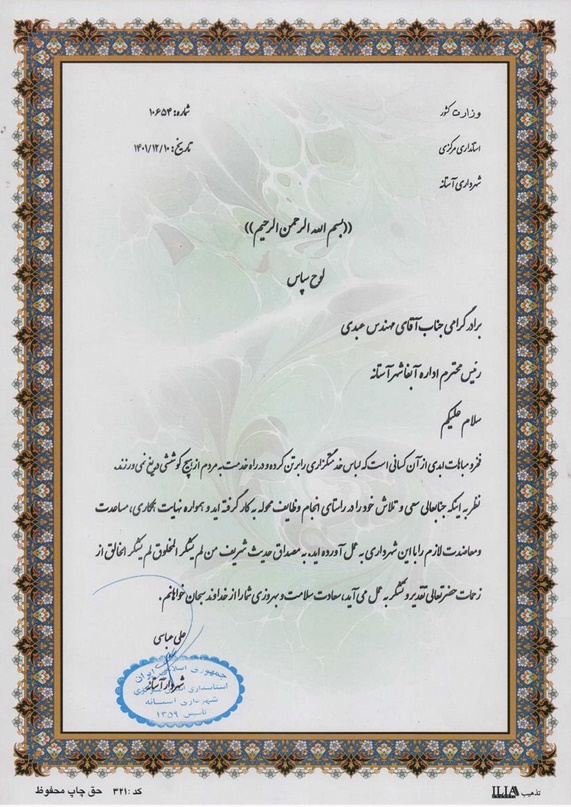 وزارت کشور
شماره: ۱۰۶۵۴
استانداری مرکزی
تاریخ: ۱۴۰۱/۱۲/۱۰
شهرداری آستانه
((بسم الله الرحمن الرحیم))
لوح سپاس
برادر گرامی جناب آقای مهندس عبدی
رئیس محترم اداره آبفا شهر آستانه
سلام علیکم
فخر و مباهات ابدی از آن کسانی است که لباس خدمتگزاری را بر تن کرده و در راه خدمت به مردم از هیچ کوششی دریغ نمی ورزند.
نظر به اینکه جنابعالی سعی و تلاش خود را در راستای انجام وظایف محوله به کار گرفته اید و همواره نهایت همکاری، مساعدت
و معاضدت لازم را با این شهرداری به عمل آورده اید، به مصداق حدیث شریف من لم یشکر المخلوق لم یشکر الخالق از
زحمات حضرتعالی تقدیر و تشکر به عمل می آید، سعادت سلامت و بهروزی شما را از خداوند سبحان خواهانم.
علی عباسی
شهردار آستانه
جمهوری اسلامی ایران
استانداری مرکزی
شهرداری آستانه
تاسیس ۱۳۵۶
کد: ۳۲۱ حق چاپ محفوظ
تذهیب ILIA